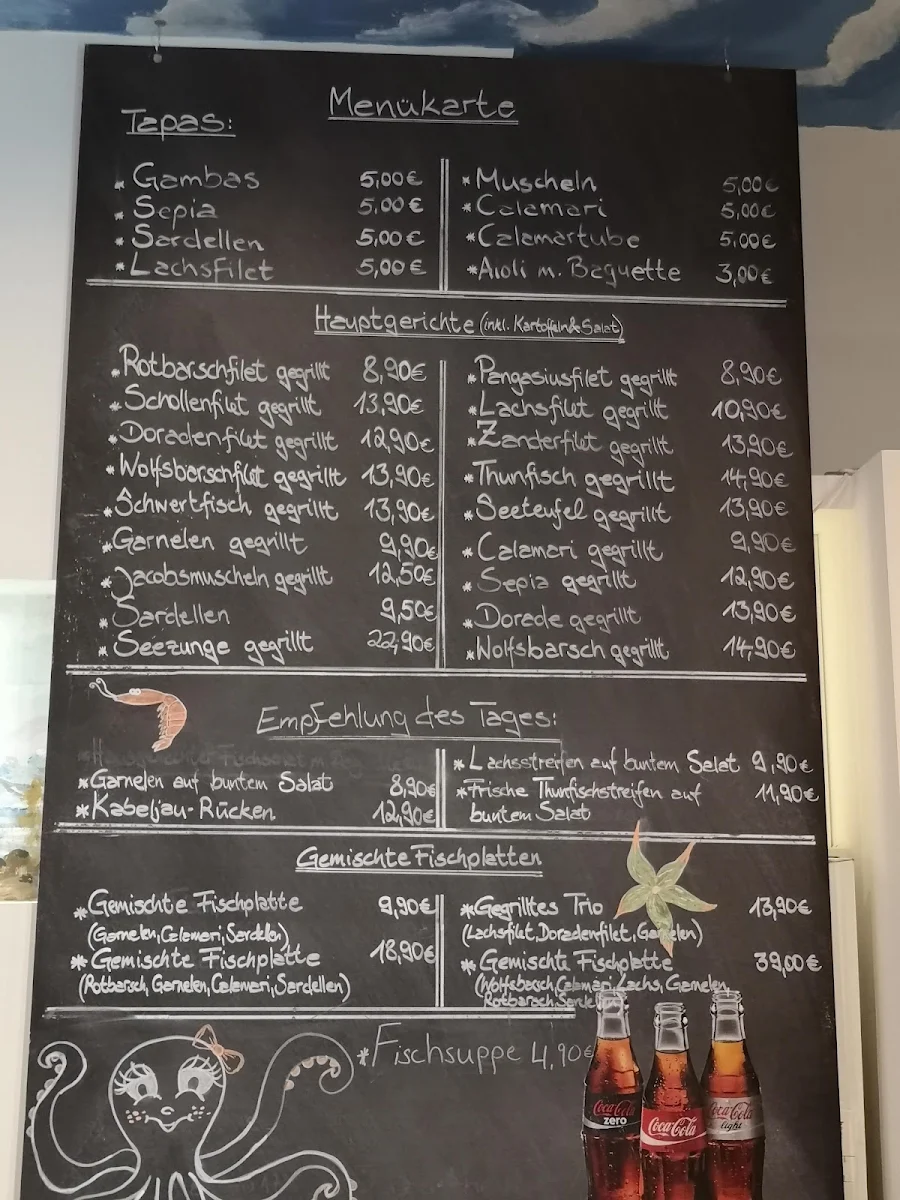 Menükarte
Tapas:
* Gambas 5,00€
* Sepia 5,00€
* Sardellen 5,00€
* Lachsfilet 5,00€
* Muscheln 5,00€
* Calamari 5,00€
* Calamartube 5,00€
* Aioli m. Baguette 3,00€
Hauptgerichte (inkl. Kartoffeln & Salat)
* Rotbarschfilet gegrillt 8,90€
* Schollenfilet gegrillt 13,90€
* Doradenfilet gegrillt 12,90€
* Wolfsbarschfilet gegrillt 13,90€
* Schwertfisch gegrillt 13,90€
* Garnelen gegrillt 9,90€
* Jacobsmuscheln gegrillt 12,50€
* Sardellen 9,50€
* Seezunge gegrillt 22,90€
* Pangasiusfilet gegrillt 8,90€
* Lachsfilet gegrillt 10,90€
* Zanderfilet gegrillt 13,90€
* Thunfisch gegrillt 14,90€
* Seeteufel gegrillt 13,90€
* Calamari gegrillt 9,90€
* Sepia gegrillt 12,90€
* Dorade gegrillt 13,90€
* Wolfsbarsch gegrillt 14,90€
Empfehlung des Tages:
* Garnelen auf buntem Salat 8,90€
* Kabeljau-Rücken 12,90€
* Lachsstreifen auf buntem Salat 9,90€
* Frische Thunfischstreifen auf 11,90€
buntem Salat
Gemischte Fischplatten
* Gemischte Fischplatte 9,90€
(Garnelen, Calamari, Sardellen)
* Gemischte Fischplatte 18,90€
(Rotbarsch, Garnelen, Calamari, Sardellen)
* Gegrilltes Trio 13,90€
(Lachsfilet, Doradenfilet, Garnelen)
* Gemischte Fischplatte 39,00€
(Wolfsbarsch, Calamari, Lachs, Garnelen,
Rotbarsch,
* Fischsuppe 4,90€
Coca-Cola
zero
Coca-Cola
Coca-Cola
light